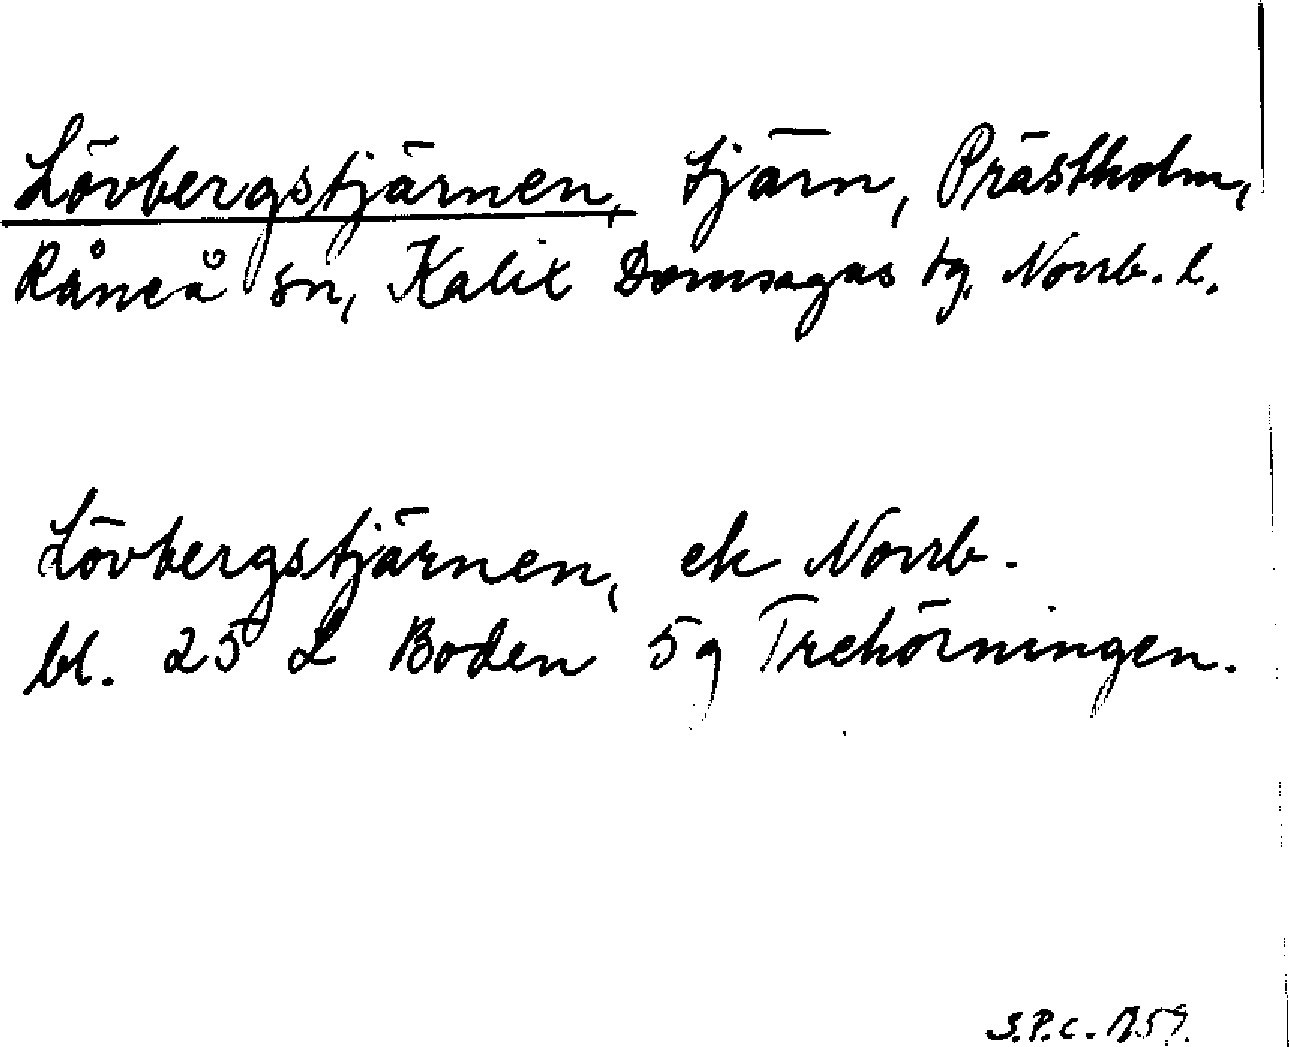 Lövbergstjärnen, tjärn, Prästholm,
Råneå sn, Kalix Domsagas tg, Norrb. l.
Lövbergstjärnen, ek Norrb.
bl. 25 L Boden 5g Trehörningen.
S.P.C.